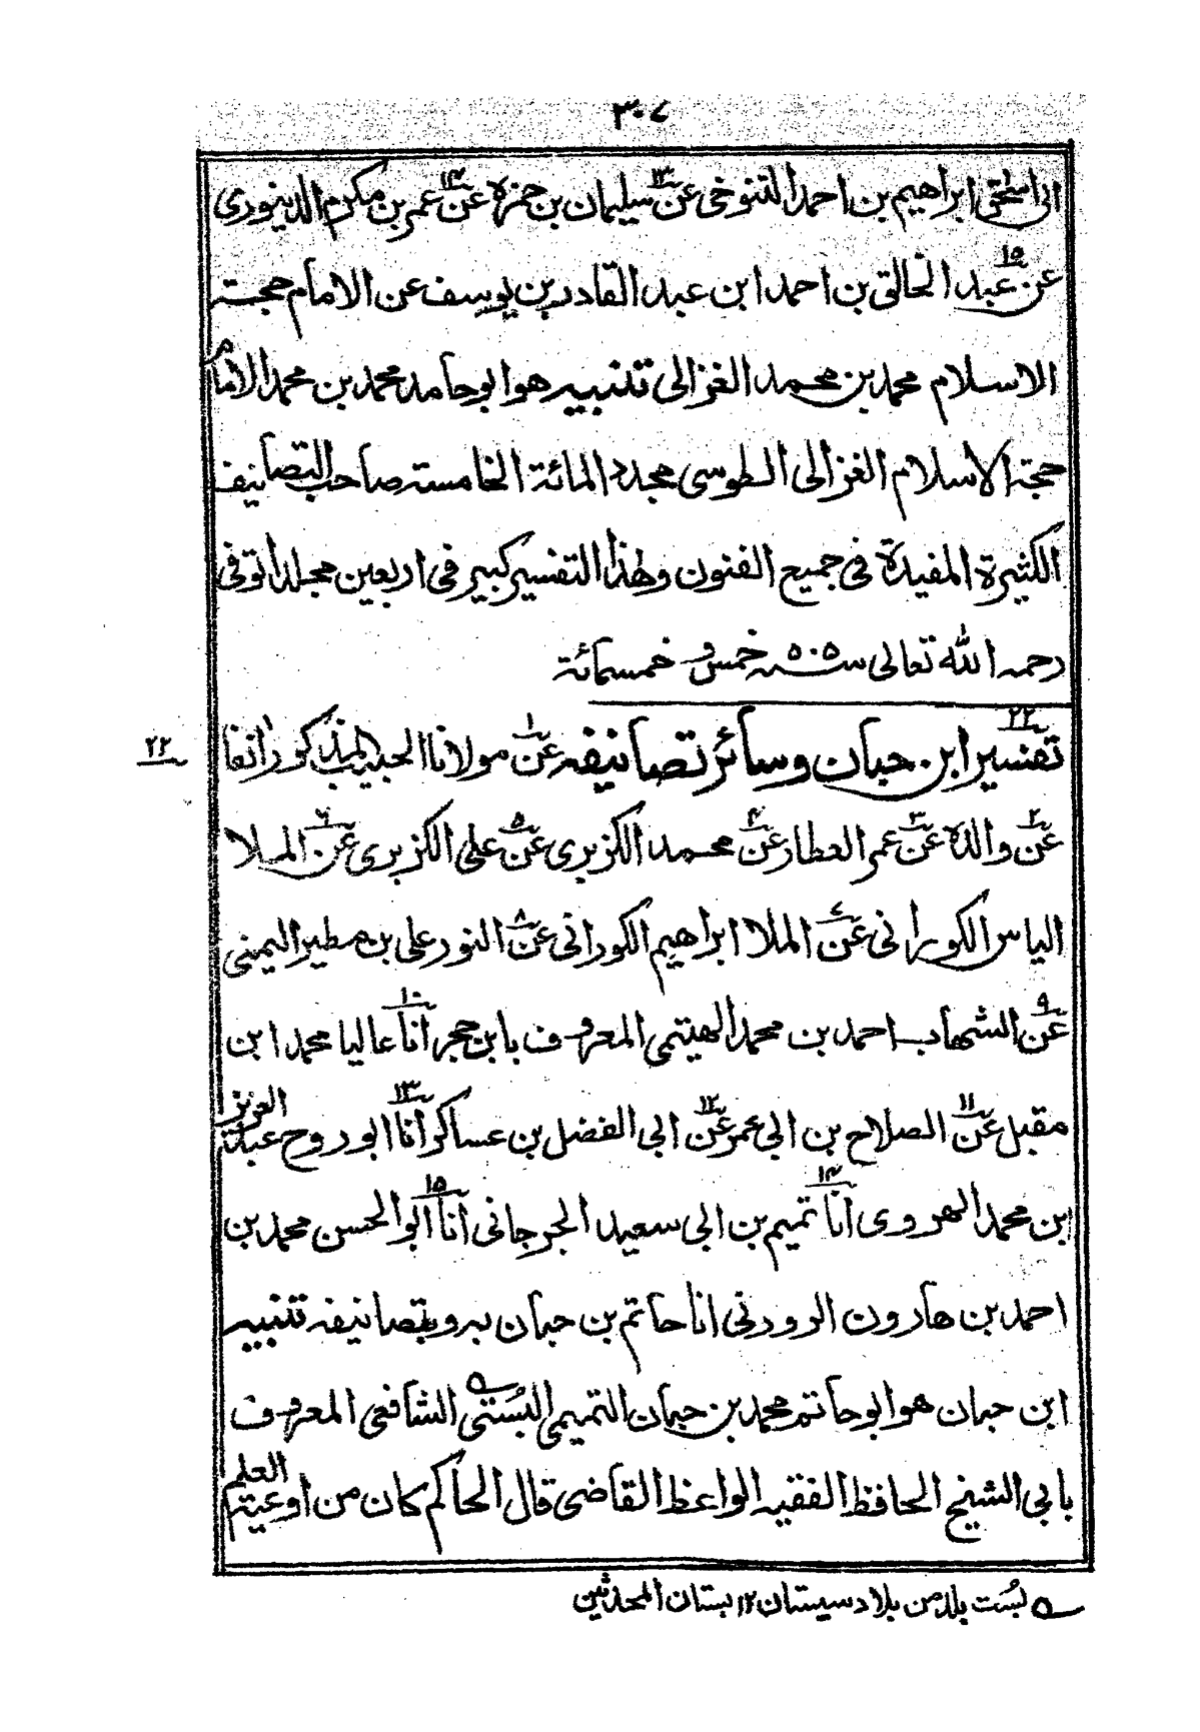 ٣٠٧
ابى اسحٰق ابراهيم بن احمد التنوخى عن١٣ سليمان بن حمزة عن١٤ عمر بن مكرم الدينورى
عن عبد١٥ الخالق بن احمد ابن عبد القادر بن يوسف عن الامام حجة
الاسلام محمد بن محمد الغزالى تنبيه هو ابو حامد محمد بن محمد الامام
حجة الاسلام الغزالى الطوسى مجدد المائة الخامسة صاحب التصانيف
الكثيرة المفيدة فى جميع الفنون وهٰذا التفسير كبير فى اربعين مجلدا توفى
رحمه الله تعالى سنة ٥٠٥ خمس و خمسمائة
٢٢
تفسير٢٢ ابن حبان وسائر تصانيفه عن١ مولانا الحبيب المذكور انفا
عن٢ والده عن٣ عمر العطار عن٤ محمد الكزبرى عن٥ على الكزبرى عن٦ الملا
الياس الكورانى عن٧ الملا ابراهيم الكورانى عن٨ النور على بن مطير اليمنى
عن٩ الشهاب احمد بن محمد الهيتمى المعروف بابن حجر انا١٠ عاليا محمد ابن
مقبل عن١١ الصلاح بن ابى عمر عن١٢ ابى الفضل بن عساكر انا١٣ ابو روح عبد العزيز
بن محمد الهروى انا١٤ تميم بن ابى سعيد الجرجانى انا١٥ ابو الحسن محمد بن
احمد بن هارون الزوزنى انا حاتم بن حبان به وبتصانيفه تنبيه
ابن حبان هو ابو حاتم محمد بن حبان التميمى البُستى الشافعى المعروف
بابى الشيخ الحافظ الفقيه الواعظ القاضى قال الحاكم كان من اوعية العلم
ه بُست بلد من بلاد سيستان ١٢ بستان المحدثين